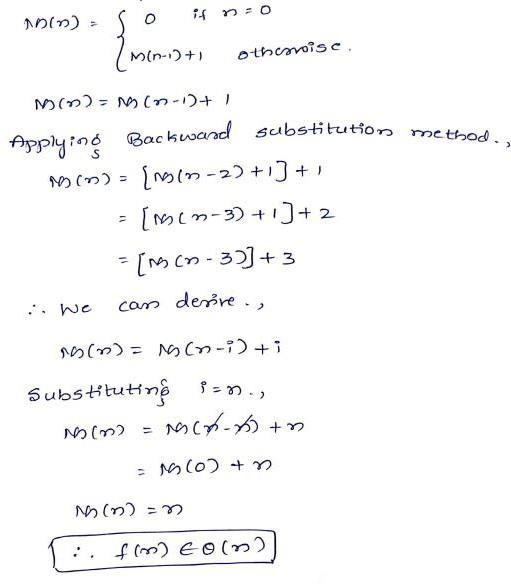 M(n) = { 0 if n = 0
M(n-1)+1 otherwise.
M(n) = M(n-1)+ 1
Applying Backward substitution method.,
M(n) = [M(n-2)+1]+1
= [M(n-3)+1]+2
= [M(n-3)]+3
∴ We can derive.,
M(n) = M(n-i)+i
Substituting i=n.,
M(n) = M(n-n)+n
= M(0)+n
M(n) = n
∴ f(n) ∈ Θ(n)